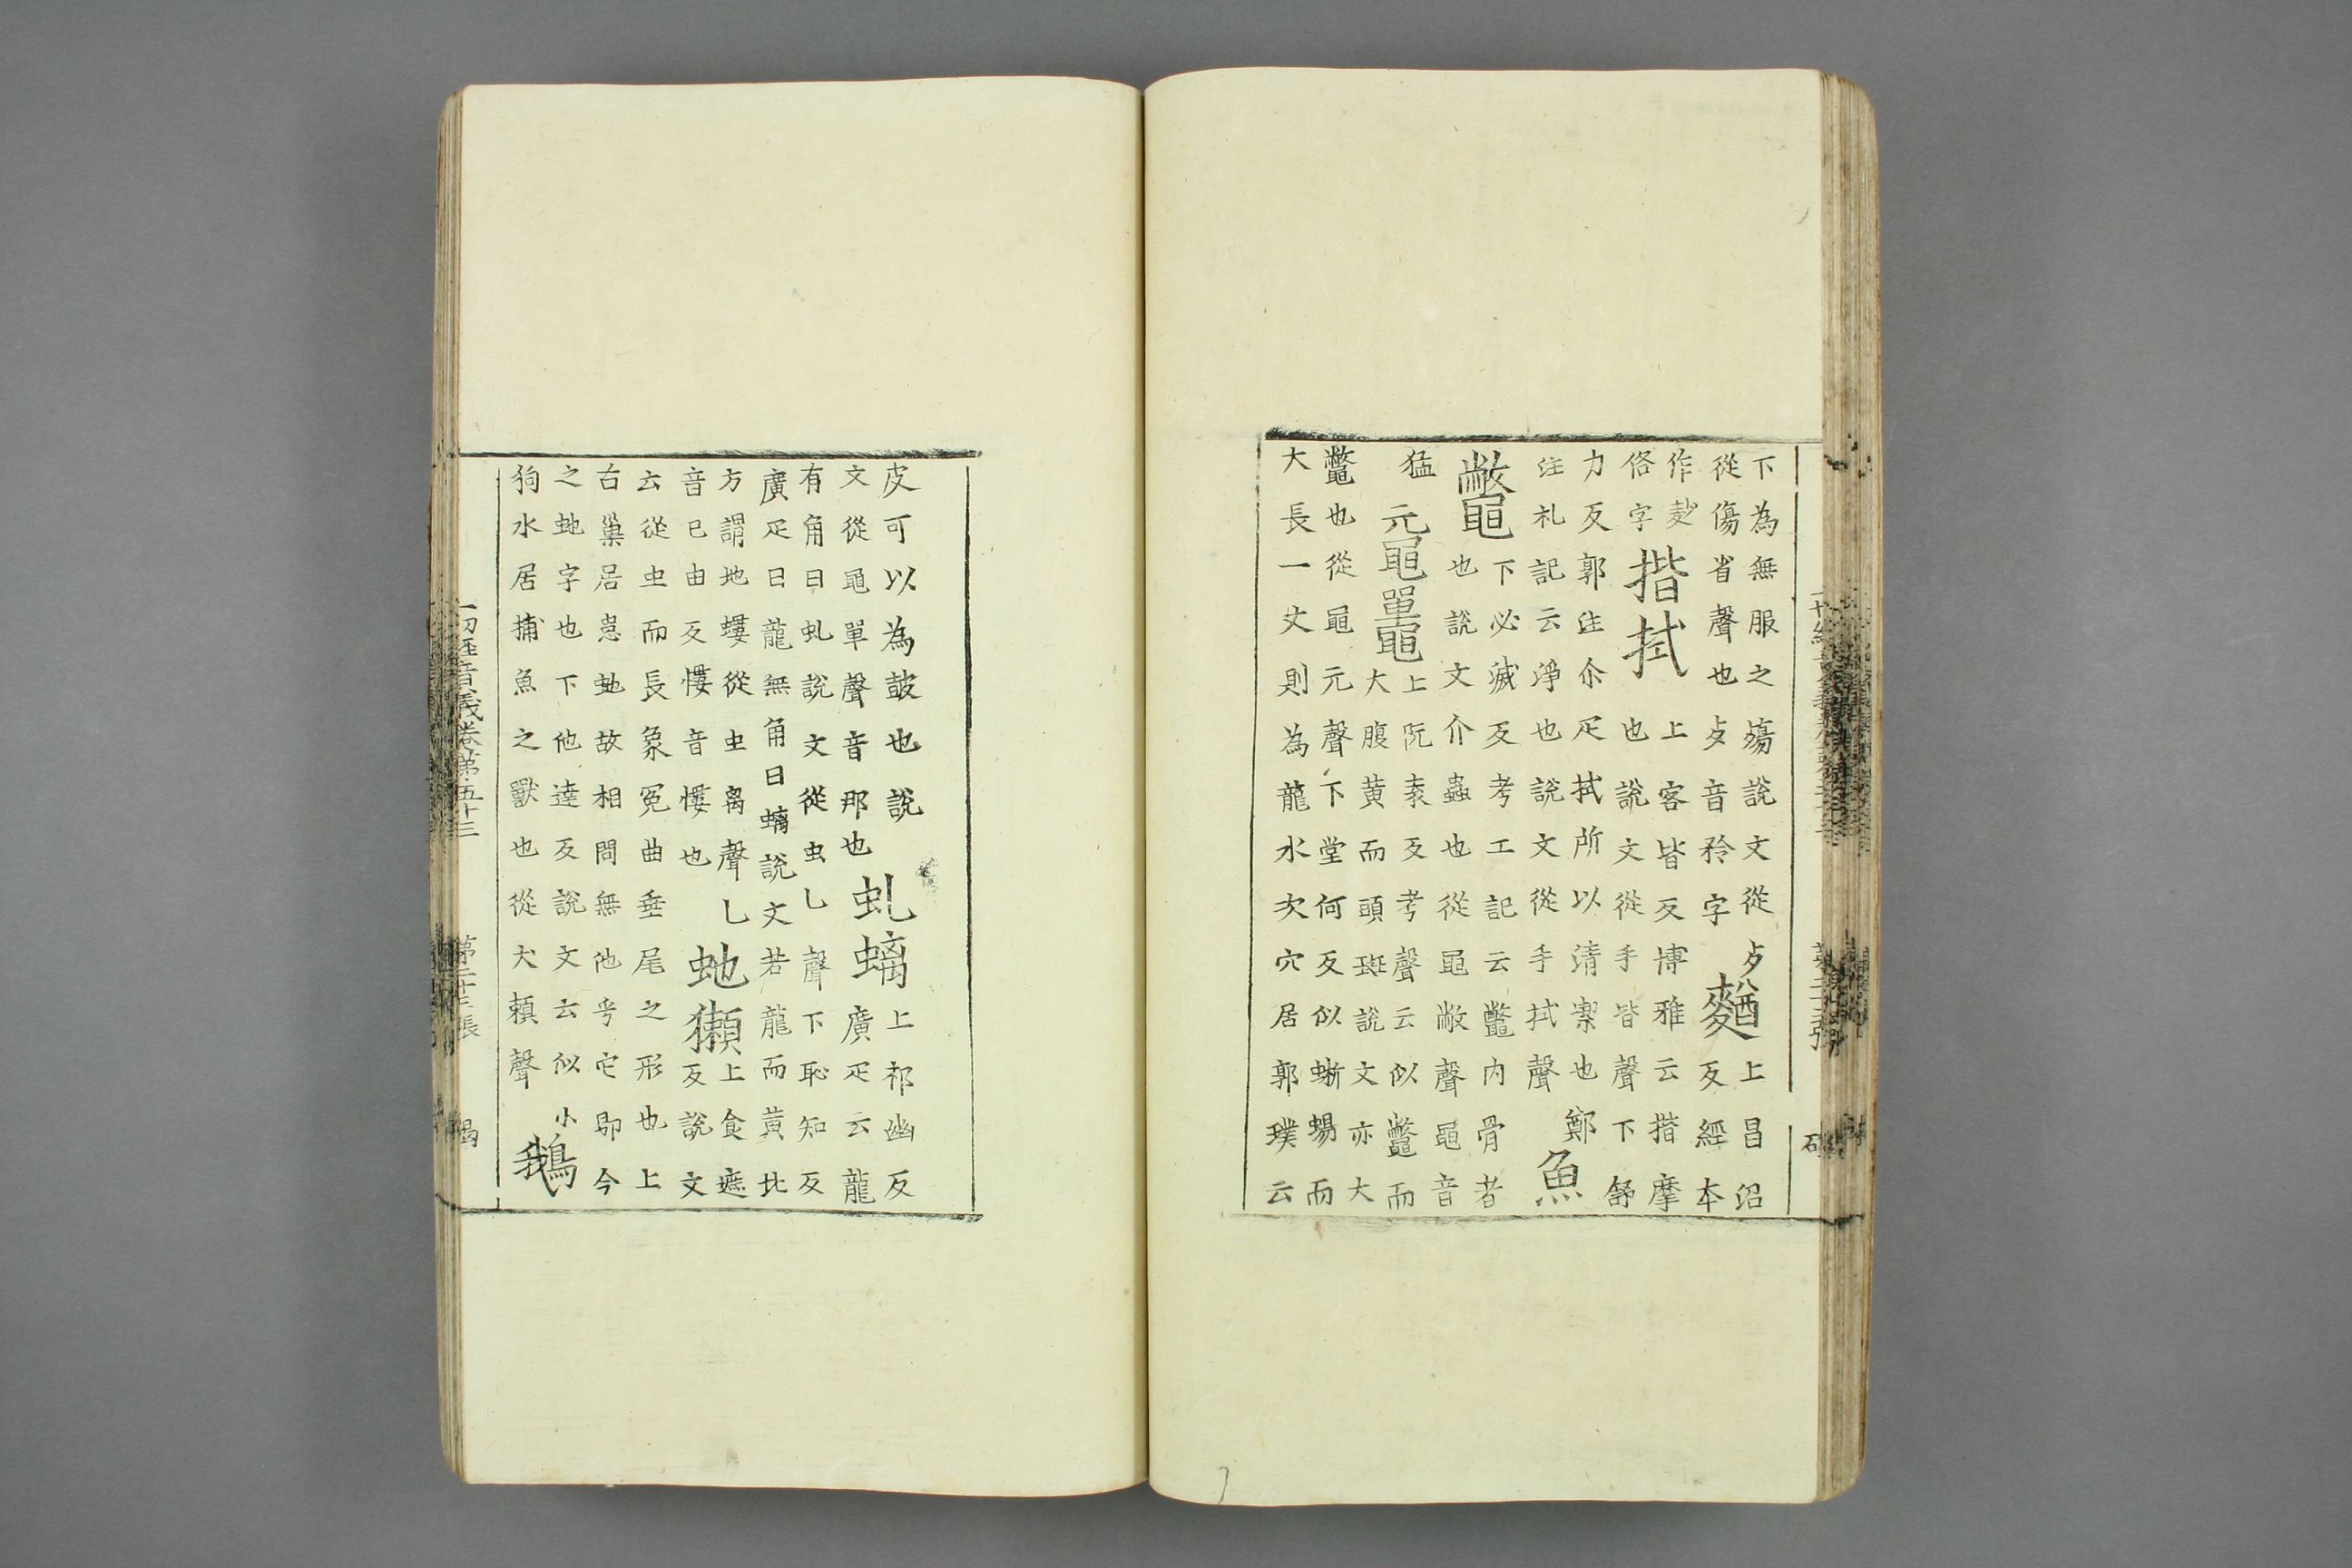 下為無服之殤說文從歹
從傷省聲也歹音矜字
麨
上昌沼
反經本
作䴬
俗字
揩拭
上客皆反博雅云揩摩
也說文從手皆聲下舒
力反郭注尒疋拭所以清潔也鄭
注札記云淨也說文從手拭聲
魚
鼈
下必滅反考工記云鼈內骨者
也說文介蟲也從黽敝聲黽音
猛
黿鼉
上阮袁反考聲云似鼈而
大腹黃而頭斑說文亦大
鼈也從黽元聲下堂何反似蜥蜴而
大長一丈則為龍水次穴居郭璞云
皮可以為皷也說
文從黽單聲音那也
虬螭
上祁幽反
廣疋云龍
有角曰虬說文從虫乚聲下恥知反
廣疋曰龍無角曰螭說文若龍而黃北
方謂地螻從虫离聲乚
音已由反慺音慺也
虵獺
上食遮
反說文
云從虫而長象冤曲垂尾之形也上
古巢居崽虵故相問無他乎它即今
之虵字也下他達反說文云似小
狗水居捕魚之獸也從犬頼聲
鵝
一切經音義卷第五十三　第二十三張